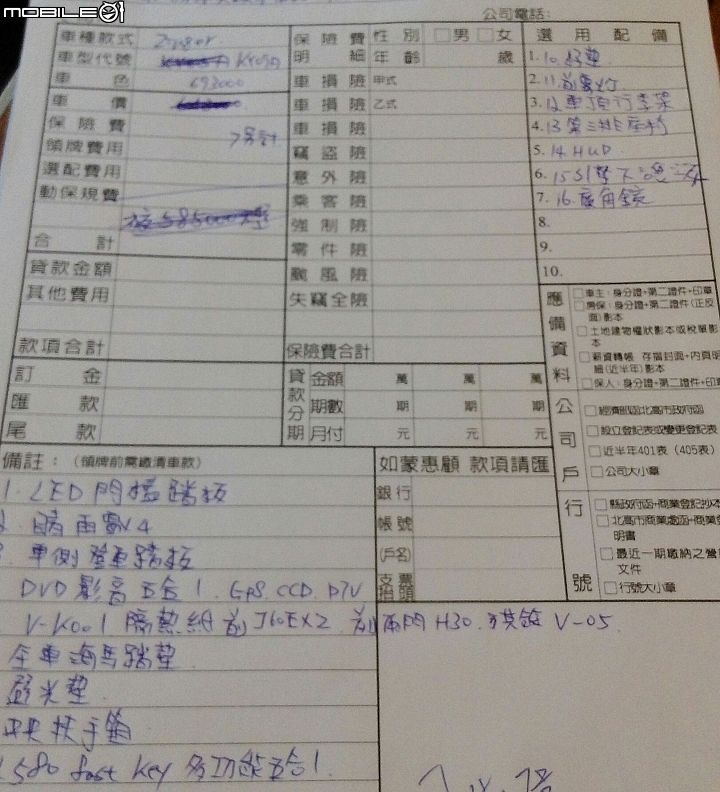 MOBILE01
公司電話:
車種款式 Zinger 保險費 性別 □男 □女 選用配備
車型代號 明細 年齡 歲 1. 10.
車色 693000 車損險 甲式 2. 11.前霧灯
車價 車損險 乙式 3. 12.車頂行李架
保險費 車損險 4. 13 第三排座椅
領牌費用 >另計 竊盜險 5. 14 HUD
選配費用 意外險 6. 15
動保規費 乘客險 7. 16.廣角鏡
強制險 8.
合計 零件險 9.
貸款金額 颱風險 10.
其他費用 失竊全險
款項合計 保險費合計
應備資料
□車主:身分證+第二證件+印章
□房保:身分證+第二證件(正反面)影本
□土地建物權狀影本或稅單影本
□薪資轉帳 存摺封面+內頁明細(近半年)影本
□保人:身分證+第二證件+印章
訂金 貸款分期 金額 萬 萬 萬
匯款 期數 期 期 期
尾款 月付 元 元 元
公司戶
□經濟部函北高市政府函
□設立登記表或變更登記表
□近半年401表(405表)
□公司大小章
行號
□縣政府函+商業登記抄本
□北高市商業處函+商業登
明書
□最近一期繳納之營
文件
□行號大小章
備註:(領牌前需繳清車款) 如蒙惠顧 款項請匯
銀行
帳號
(戶名)
支票抬頭
1. LED門檻踏板
晴雨窗×4
車側登車踏板
DVD影音五合1. GPS.CCD.DTV
V-KOOl 隔熱紙前J60EX2. 前兩門H30. V-05.
全車海馬踏墊
避光墊
中央扶手箱
S80 fast key 多功能五合1.